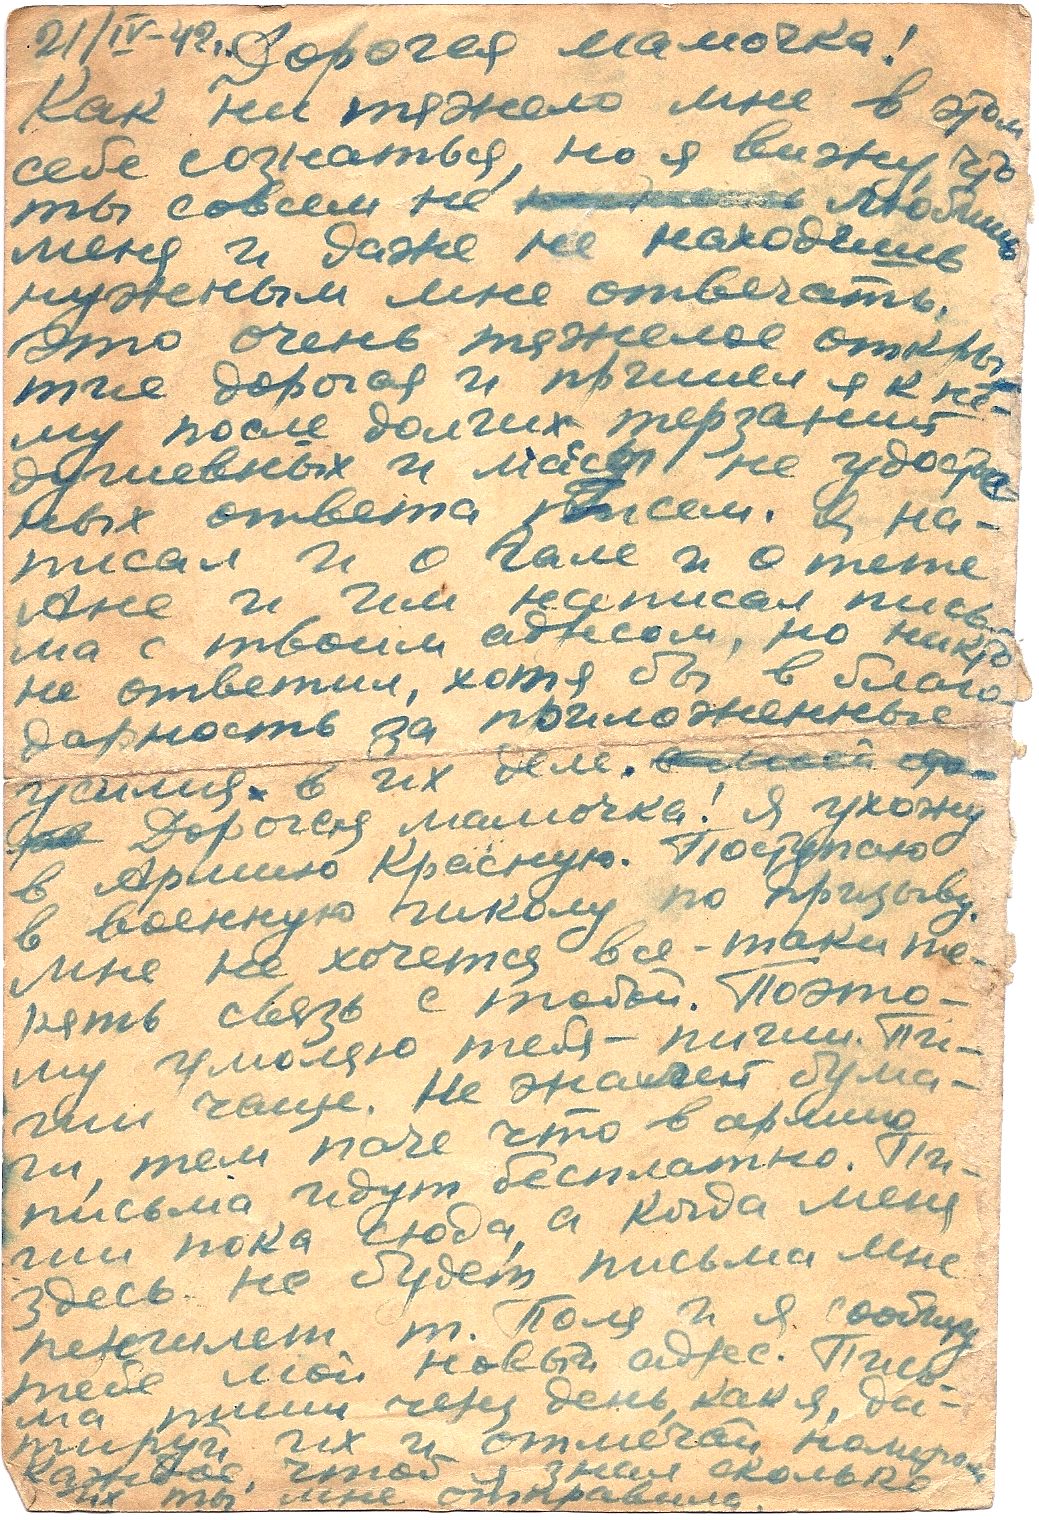 21/IV-42г. Дорогая мамочка!
Как ни тяжело мне в этом
себе сознаться, но я вижу, что
ты совсем не любишь
меня и даже не находишь
нужным мне отвечать.
Это очень тяжелое откры
тие дорогая и пришел я к не-
му после долгих терзаний
душевных и массы не удостое-
ных ответа писем. Я на-
писал и о Гале и о тете
Ане и им написал пись-
ма с твоим адресом, но никто
не ответил, хотя бы в благо-
дарность за приложенные
усилия в их деле.
Дорогая мамочка! Я ухожу
в Армию Красную. Поступаю
в военную школу по призыву.
Мне не хочется все-таки те-
рять связь с тобой. Поэто-
му умоляю тебя - пиши. Пи-
ши чаще. Не жалей бума-
ги, тем паче что в армию
письма идут бесплатно. Пи-
ши пока сюда, а когда меня
здесь не будет письма мне
перешлет т. Поля и я сообщу
тебе мой новый адрес. Пись-
ма пиши через день, как я, да-
тируй их и отмечай номером
каждое, чтоб я знал сколько
их ты мне отправила.